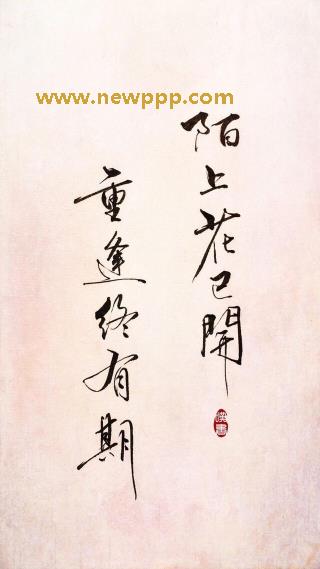 www.newppp.com
陌上花已開
重逢終有期